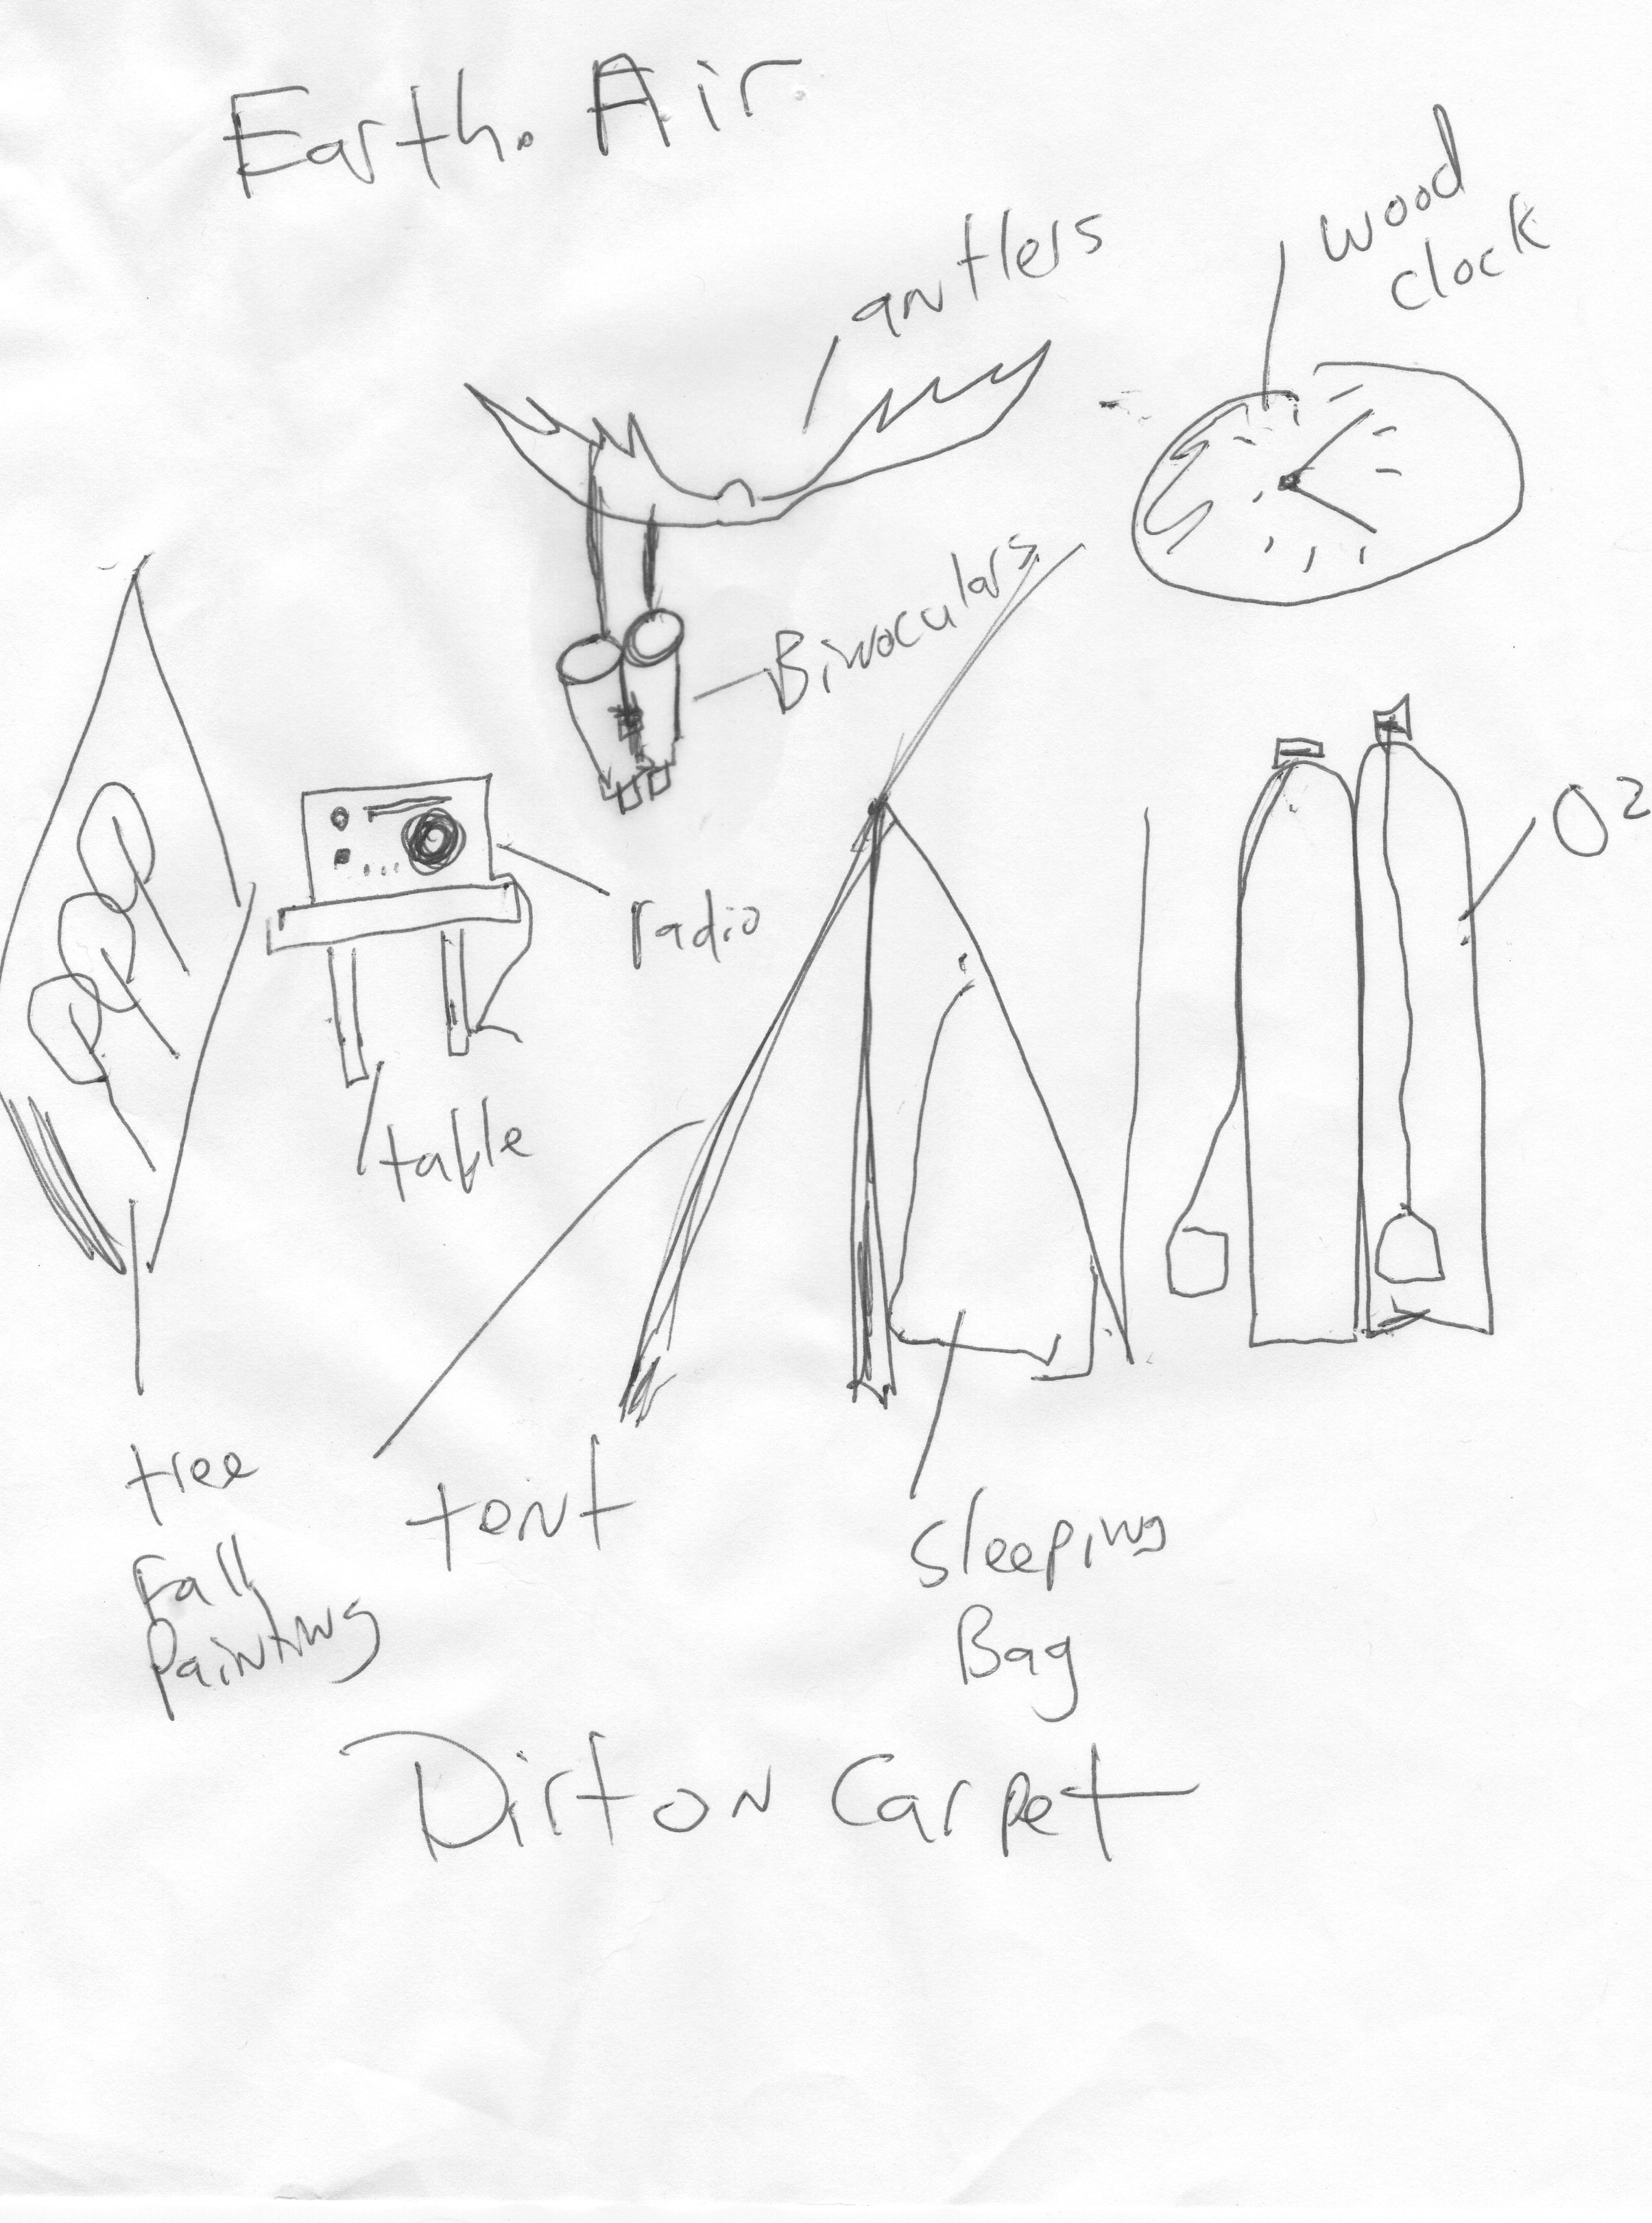 Earth. Air
wood
clock
antlers
Binoculars
O2
radio
table
tree
Fall
Painting
tent
Sleeping
Bag
Dirt on Carpet